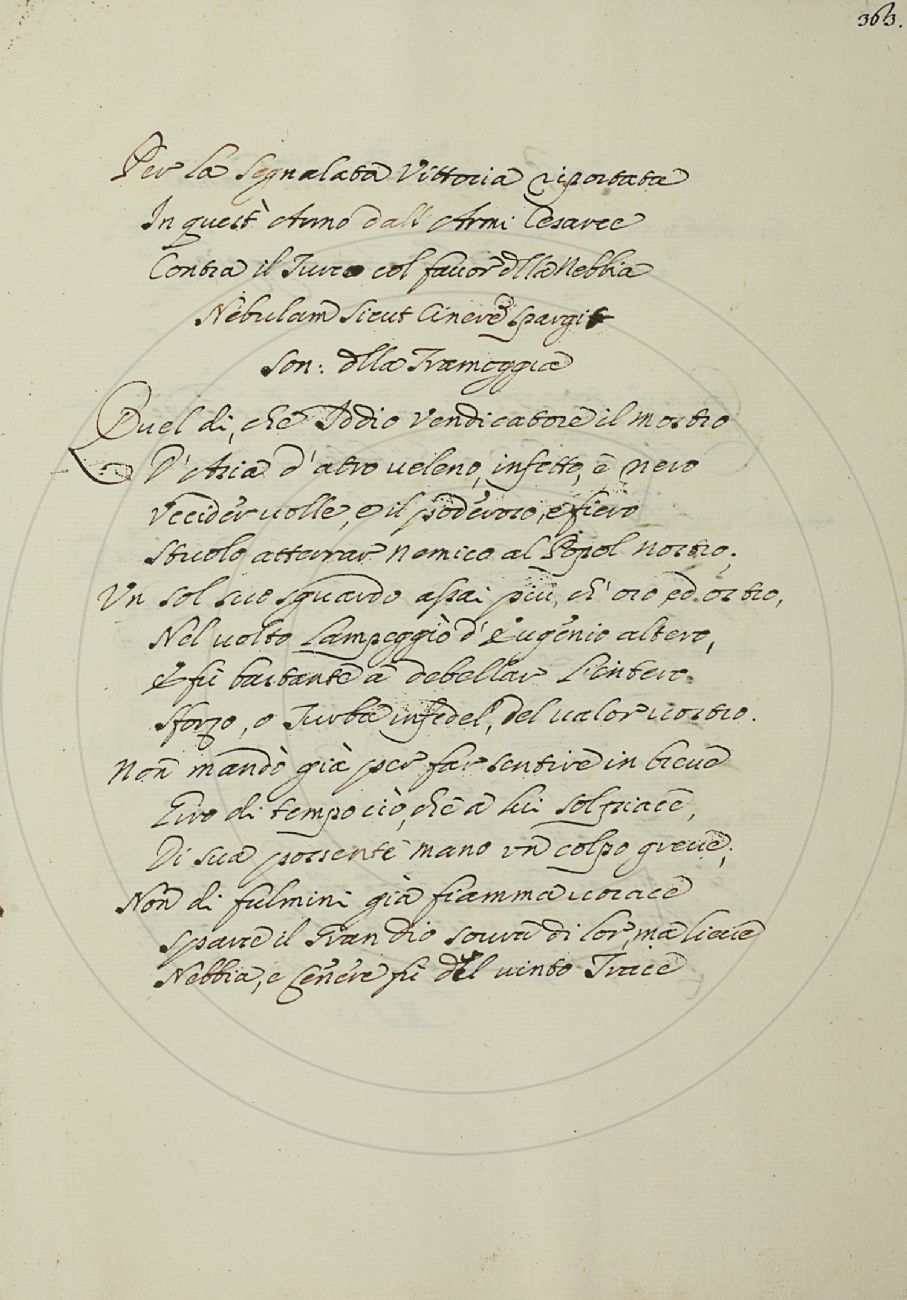 363.
Per la Segnalata Vittoria riportata
In quest' Anno dall' Armi Cesaree
Contra il Turco col favor dlla Nebbia
Nebulam Sicut Cinerē spargit
Son: dlla Tramoggia
Quel di, che Iddio Vendicatore il Mostro
D' Asia d' atro veleno, infetto, e nero
Uccider volle, e il poderoso, e fiero
Stuolo atterrar Nemico al Popol Nostro;
Un sol suo sguardo assai più, ch' oro, ed ostro,
Nel volto Lampeggiò d' Eugenio altero,
E fù bastante à debellar L'intero
Sforzo, o Turba infedel, del valor vostro.
Non mandò già per far sentire in breve
Giro di tempo ciò, che à lui sol piace,
Di sua possente mano un colpo greve;
Non di fulmini già fiamma vorace
Sparse il Gran Dio sovra di lor, ma lieve
Nebbia, e Cenere fù del vinto Trace